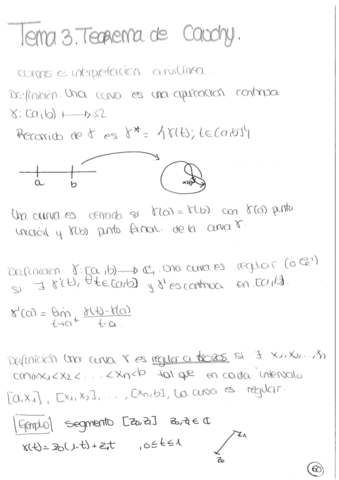 Tema 3. Teorema de Cauchy.
curvas e interpretación curvilínea.
Definición. Una curva es una aplicación continua
γ: [a,b] ⟼ Ω
Recorrido de γ es γ* = {γ(t); t∈[a,b]}
a b
Una curva es cerrada si γ(a) = γ(b) con γ(a) punto
inicial y γ(b) punto final de la curva γ.
Definición γ: [a,b] ⟼ ℂ, Una curva es regular (o C¹)
si ∃ γ'(t), ∀t∈[a,b] y γ' es continua en [a,b].
γ'(a) = lim t→a⁺ γ(t)-γ(a) / t-a
Definición Una curva γ es regular a trozos si ∃ x₁, x₂, ..., xₙ
con a<x₁<x₂< ... <xₙ<b tal que en cada intervalo
[a,x₁], [x₁,x₂], ..., [xₙ,b], la curva es regular.
Ejemplo segmento [z₀,z₁] z₀,z₁ ∈ ℂ
γ(t) = z₀(1-t)+z₁t , 0≤t≤1
z₁
z₀